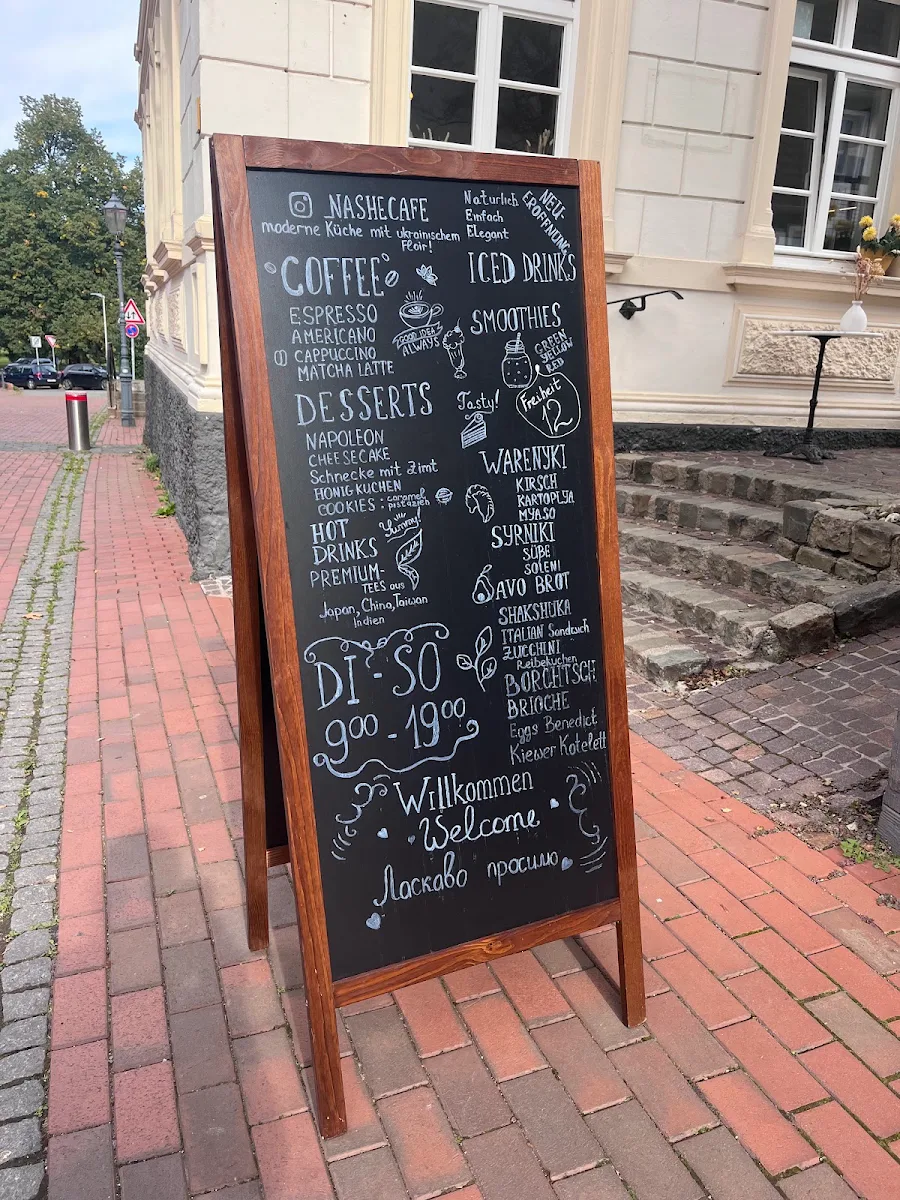 _NASHECAFE
moderne Küche mit ukrainischem
Fleir!
Naturlich
Einfach
Elegant
NEU-
ERÖFFNUNG
COFFEE
ESPRESSO
AMERICANO
CAPPUCCINO
MATCHA LATTE
GOOD IDEA
ALWAYS
DESSERTS
NAPOLEON
CHEESECAKE
Schnecke mit Zimt
HONIG-KUCHEN
COOKIES: caramel
pistazien
Yummy!
HOT
DRINKS
PREMIUM-
TEES aus
Japan, China, Taiwan
Indien
DI-SO
9⁰⁰-19⁰⁰
ICED DRINKS
SMOOTHIES
GREEN
YELLOW
RED
Freiheit
12
Tasty!
WARENYKI
KIRSCH
KARTOPLYA
MYASO
SYRNIKI
SÜßE
SOLENI
AVO BROT
SHAKSHUKA
ITALIAN Sandwich
ZUCCHINI
Reibekuchen
BORCHTSCH
BRIOCHE
Eggs Benedict
Kiewer Kotelett
Willkommen
Welcome
Ласкаво просимо